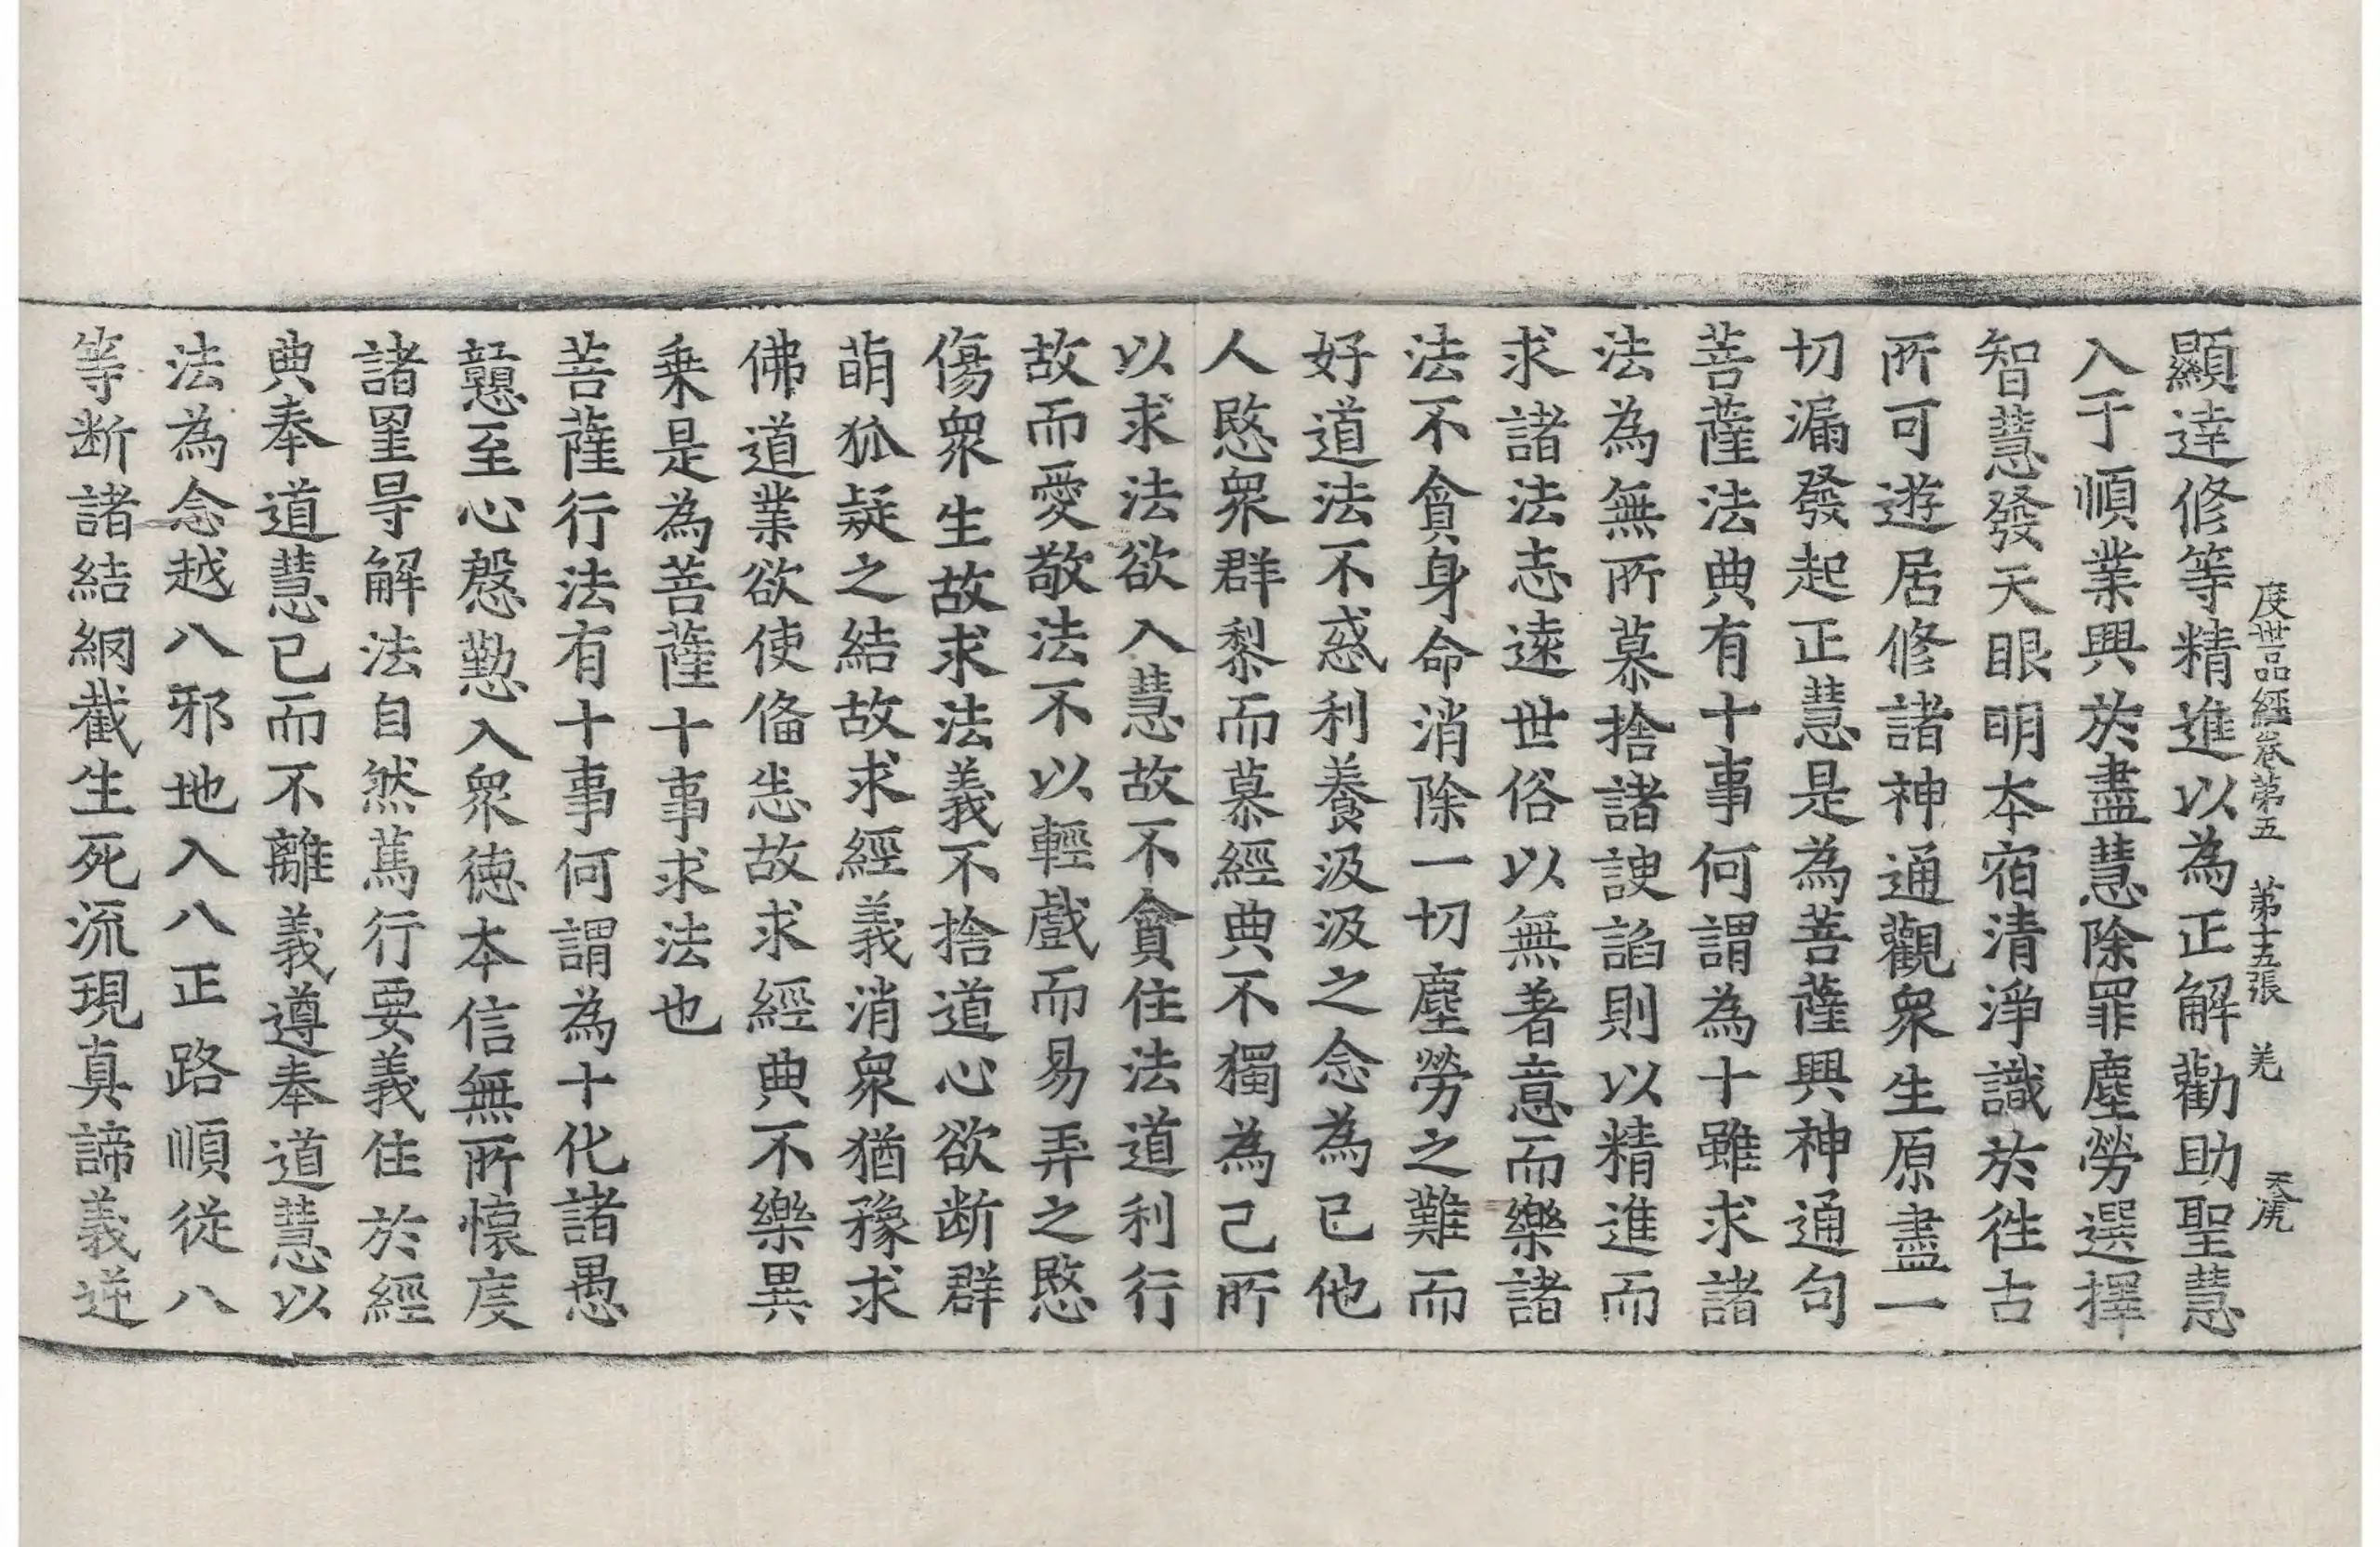 度世品經卷第五　第十五張　羌　天虎
顯達修等精進以為正解勸助聖慧
入于順業興於盡慧除罪塵勞選擇
智慧發天眼明本宿清淨識於往古
所可遊居修諸神通觀衆生原盡一
切漏發起正慧是為菩薩興神通句
菩薩法典有十事何謂為十雖求諸
法為無所慕捨諸諛諂則以精進而
求諸法志遠世俗以無著意而樂諸
法不貪身命消除一切塵勞之難而
好道法不惑利養汲汲之念為己他
人愍衆群黎而慕經典不獨為己所
以求法欲入慧故不貪住法道利行
故而愛敬法不以輕戲而易弄之愍
傷衆生故求法義不捨道心欲断群
萌狐疑之結故求經義消衆猶豫求
佛道業欲使俻恙故求經典不樂異
乗是為菩薩十事求法也
菩薩行法有十事何謂為十化諸愚
戇至心慇懃入衆徳本信無所懷度
諸罣㝵解法自然篤行要義住於經
典奉道慧已而不離義遵奉道慧以
法為念越八邪地入八正路順從八
等断諸結網截生死流現真諦義逆